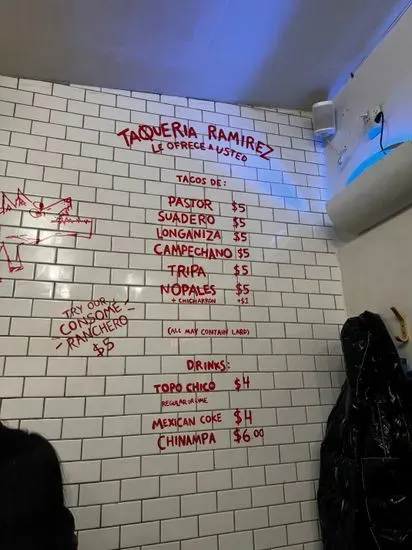 TAQUERIA RAMIREZ
LE OFRECE A USTED
TACOS DE:
PASTOR $5
SUADERO $5
LONGANIZA $5
CAMPECHANO $5
TRIPA $5
NOPALES $5
+ CHICHARRON +$1
TRY OUR
CONSOME
RANCHERO
$5
(ALL MAY CONTAIN LARD)
DRINKS:
TOPO CHICO $4
REGULAR OR LIME
MEXICAN COKE $4
CHINAMPA $6.00